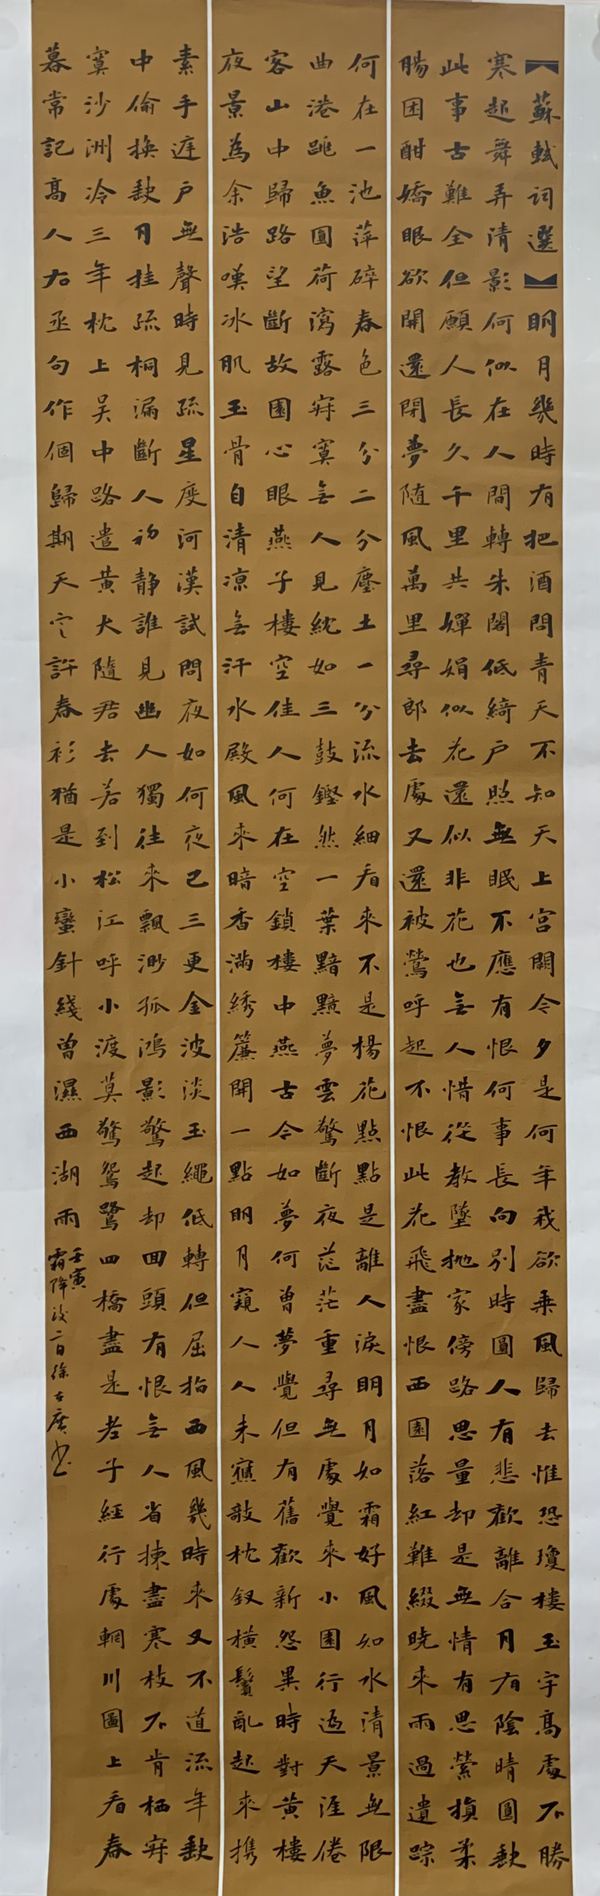 【蘇軾詞選】明月幾時有把酒問青天不知天上宮闕今夕是何年我欲乘風歸去惟恐瓊樓玉宇高處不勝
寒起舞弄清影何似在人間轉朱閣低綺戶照無眠不應有恨何事長向別時圓人有悲歡離合月有陰晴圓缺
此事古難全但願人長久千里共嬋娟似花還似非花也無人惜從教墜拋家傍路思量却是無情有思縈損柔
腸困酣嬌眼欲開還閉夢隨風萬里尋郎去處又還被鶯呼起不恨此花飛盡恨西園落紅難綴曉來雨過遺踪
何在一池萍碎春色三分二分塵土一分流水細看來不是楊花點點是離人淚明月如霜好風如水清景無限
曲港跳魚圓荷瀉露寂寞無人見紞如三鼓鏗然一葉黯黯夢雲驚斷夜茫茫重尋無處覺來小園行遍天涯倦
客山中歸路望斷故園心眼燕子樓空佳人何在空鎖樓中燕古今如夢何曾夢覺但有舊歡新怨異時對黃樓
夜景為余浩嘆冰肌玉骨自清涼無汗水殿風來暗香滿綉簾開一點明月窺人人未寢敧枕釵橫鬢亂起來携
素手庭戶無聲時見疏星度河漢試問夜如何夜已三更金波淡玉繩低轉但屈指西風幾時來又不道流年缺
中偷換缺月挂疏桐漏斷人初靜誰見幽人獨往來飄渺孤鴻影驚起却回頭有恨無人省揀盡寒枝不肯栖寂
寞沙洲冷三年枕上吳中路遣黃犬隨君去若到松江呼小渡莫驚鴛鷺四橋盡是老子經行處輞川圖上看春
暮常記高人右丞句作個歸期天定許春衫猶是小蠻針綫曾濕西湖雨
壬寅
霜降後二日徐廣書